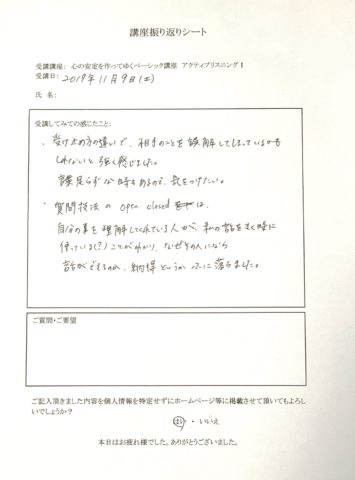 講座振り返りシート
受講講座: 心の安定を作ってゆくベーシック講座 アクティブリスニングⅠ
受講日: 2019年 11月 9日(土)
氏 名:
受講してみての感じたこと:
、受け止め方の違いで、相手のことを誤解してしまっているかも
しれないと強く感じました。
言葉足らずな時もあるので、気をつけたい。
・質問技法の open closed は、
自分の事を理解してくれている人が、私の話をきく時に
使っている(?)ことがわかり、なぜその人になら
話ができるのか、納得というか心に落ちました。
ご質問・ご要望
ご記入頂きました内容を個人情報を特定せずにホームページ等に掲載させて頂いてもよろし
いでしょうか?
はい ・ いいえ
本日はお疲れ様でした。ありがとうございました。